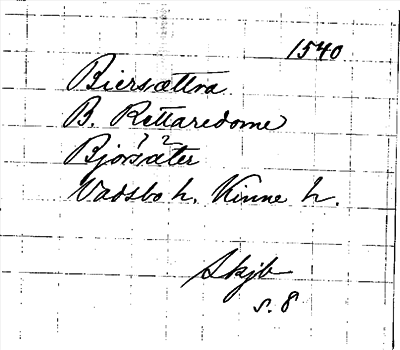 1540
Biersættra
B. Rettaredome
Bjorsæter
Vadsbo h. Kinne h.
Skjb
s. 8